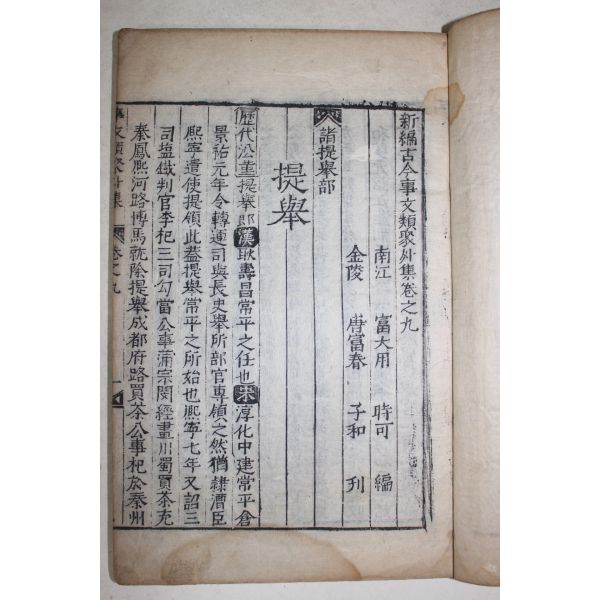 新編古今事文類聚外集卷之九
南江 富大用 時可 編
金陵 唐富春 子和 刊
諸提舉部
提舉
歷代沿革提舉即漢耿壽昌常平之任也宋淳化中建常平倉
景祐元年令轉運司與長史舉所部官專領之然猶隸漕臣
熙寧遣使提領此蓋提舉常平之所始也熙寧七年又詔三
司塩鐵判官李杞三司勾當公事蒲宗閔經畫川蜀買茶充
秦鳳熙河路博馬就除提舉成都府路買茶公事杞於秦州
事文類聚外集 卷之九 一